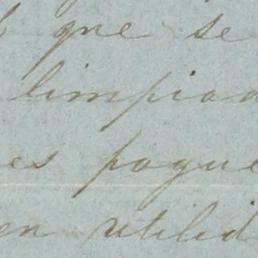 que se
limpiad
es pague
en utilid